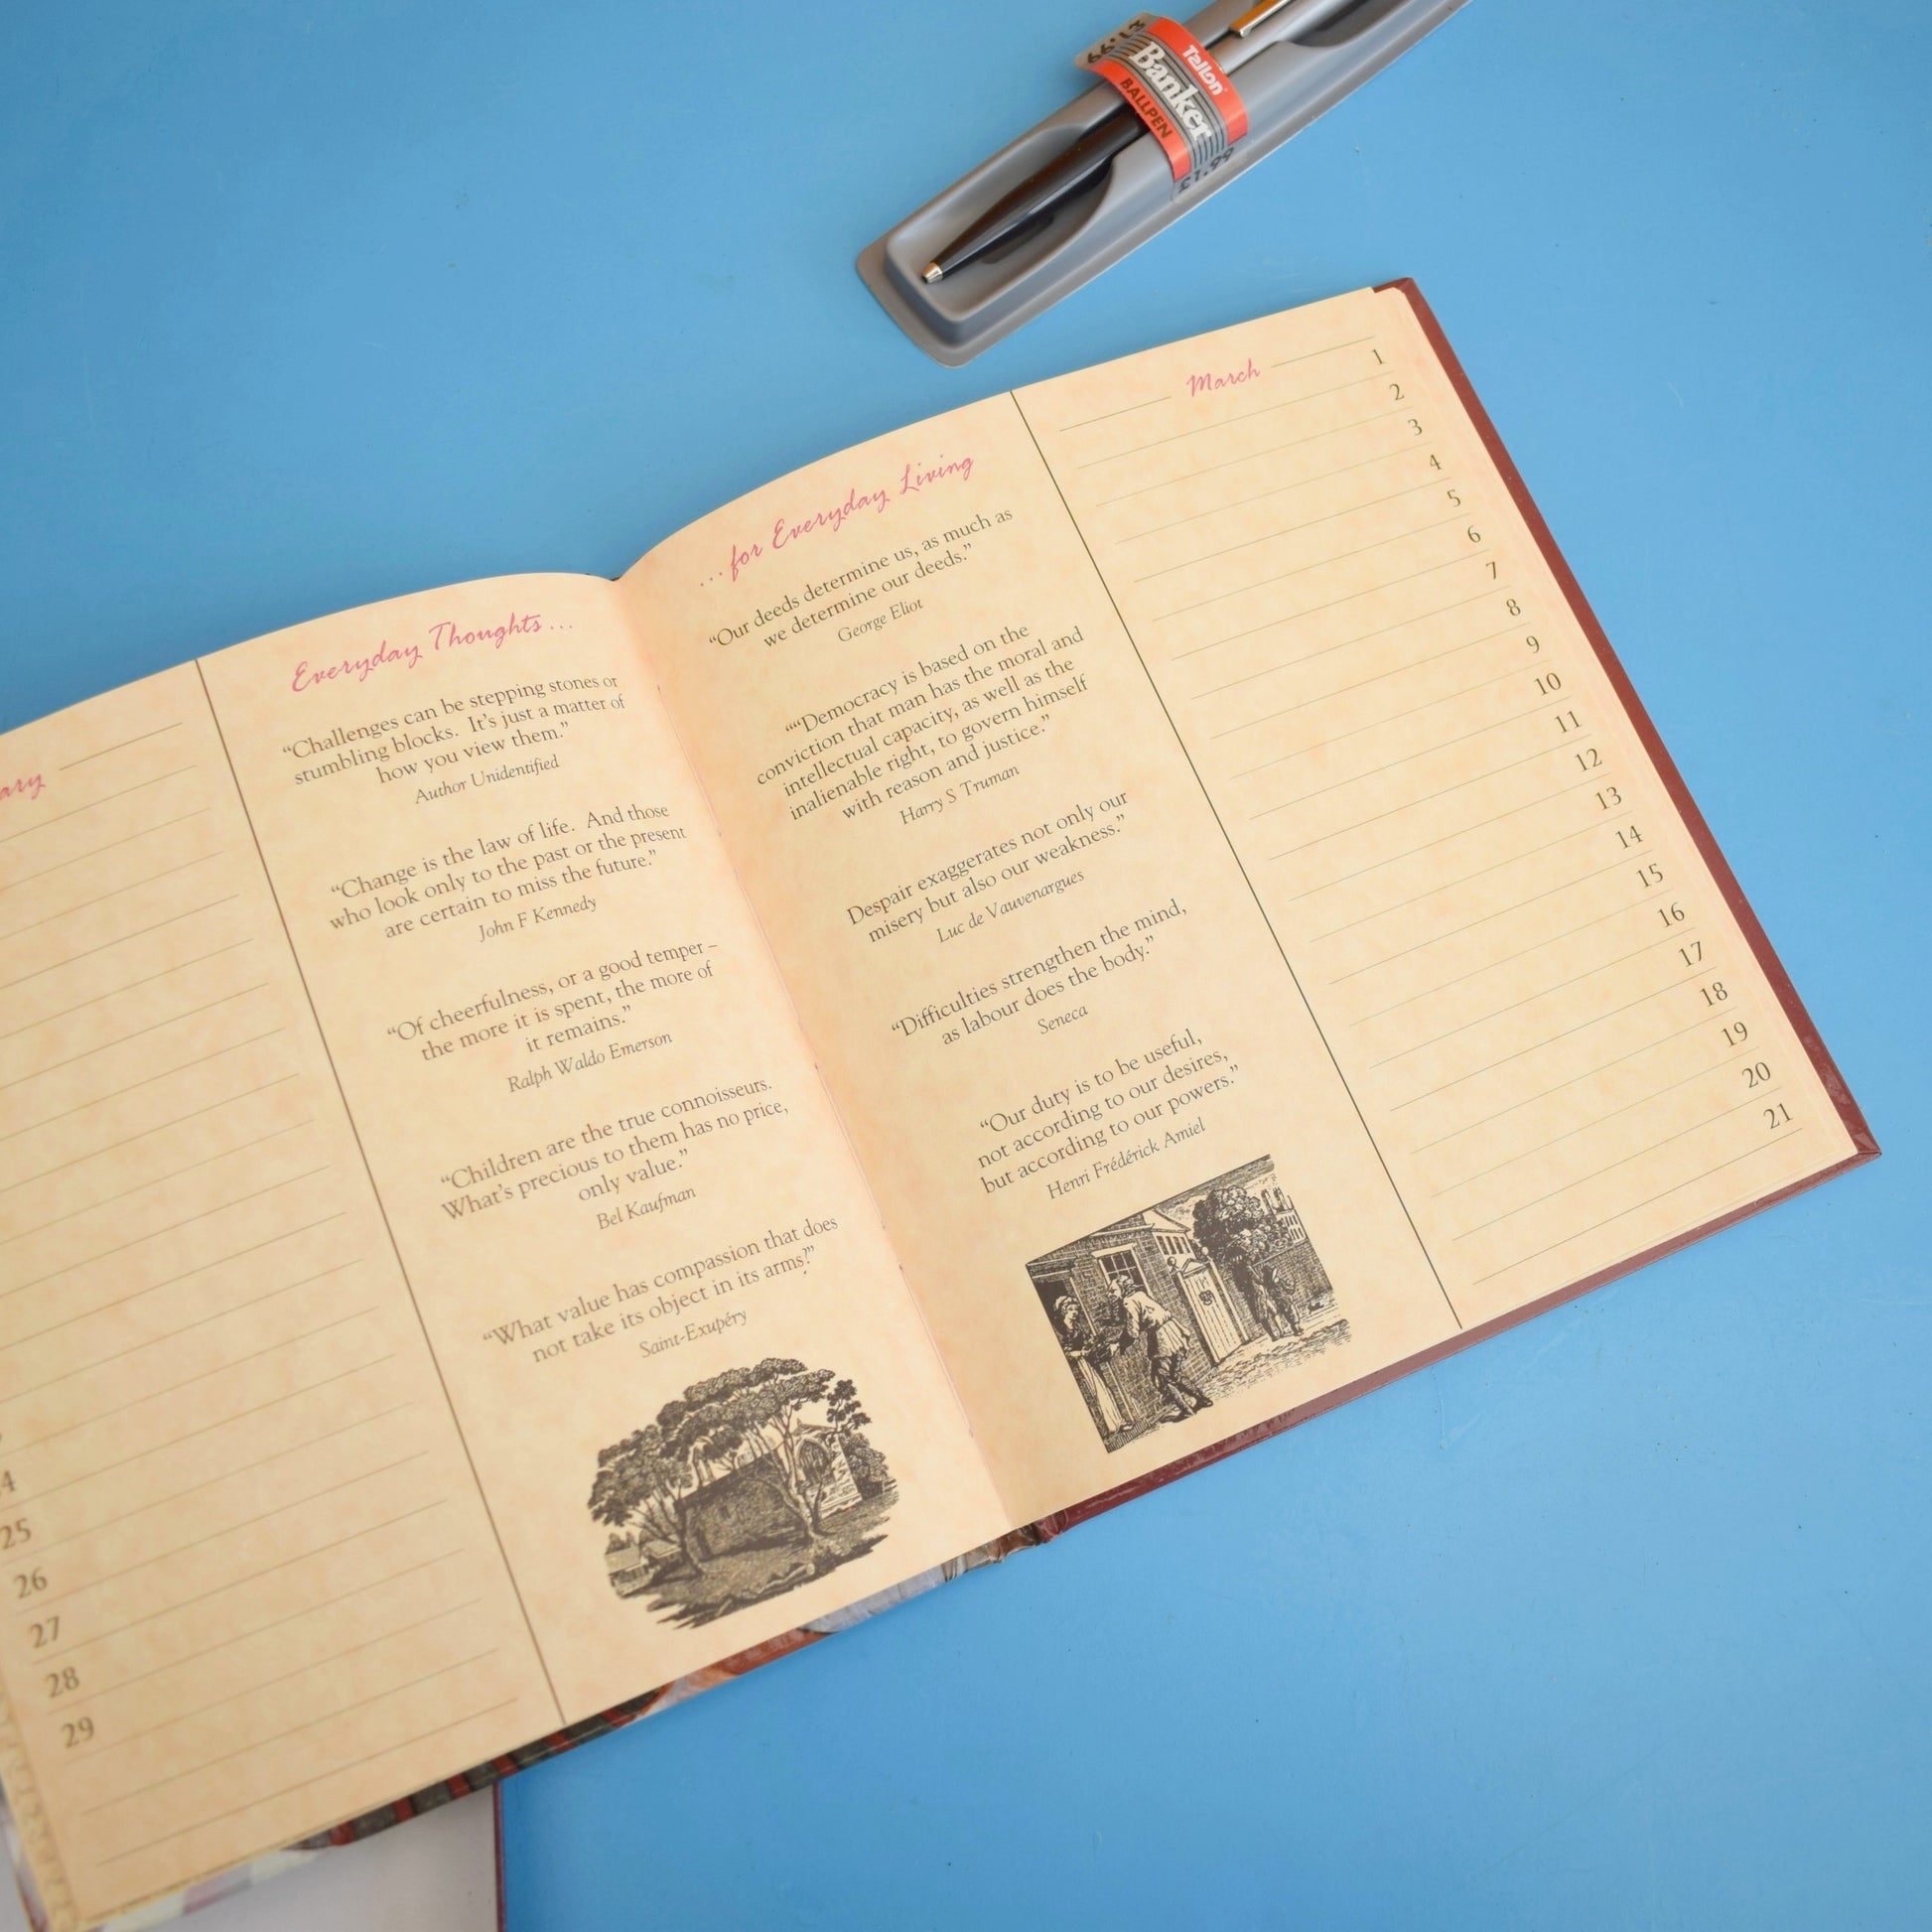 £1.99
Tallon
Banker
BALLPEN
£1.99
ary
4
25
26
27
28
29
Everyday Thoughts ...
“Challenges can be stepping stones or
stumbling blocks. It's just a matter of
how you view them.”
Author Unidentified
“Change is the law of life. And those
who look only to the past or the present
are certain to miss the future.”
John F Kennedy
“Of cheerfulness, or a good temper –
the more it is spent, the more of
it remains.”
Ralph Waldo Emerson
“Children are the true connoisseurs.
What's precious to them has no price,
only value.”
Bel Kaufman
“What value has compassion that does
not take its object in its arms?”
Saint-Exupéry
... for Everyday Living
“Our deeds determine us, as much as
we determine our deeds.”
George Eliot
““Democracy is based on the
conviction that man has the moral and
intellectual capacity, as well as the
inalienable right, to govern himself
with reason and justice.”
Harry S Truman
Despair exaggerates not only our
misery but also our weakness.”
Luc de Vauvenargues
“Difficulties strengthen the mind,
as labour does the body.”
Seneca
“Our duty is to be useful,
not according to our desires,
but according to our powers.”
Henri Frédérick Amiel
March
1
2
3
4
5
6
7
8
9
10
11
12
13
14
15
16
17
18
19
20
21